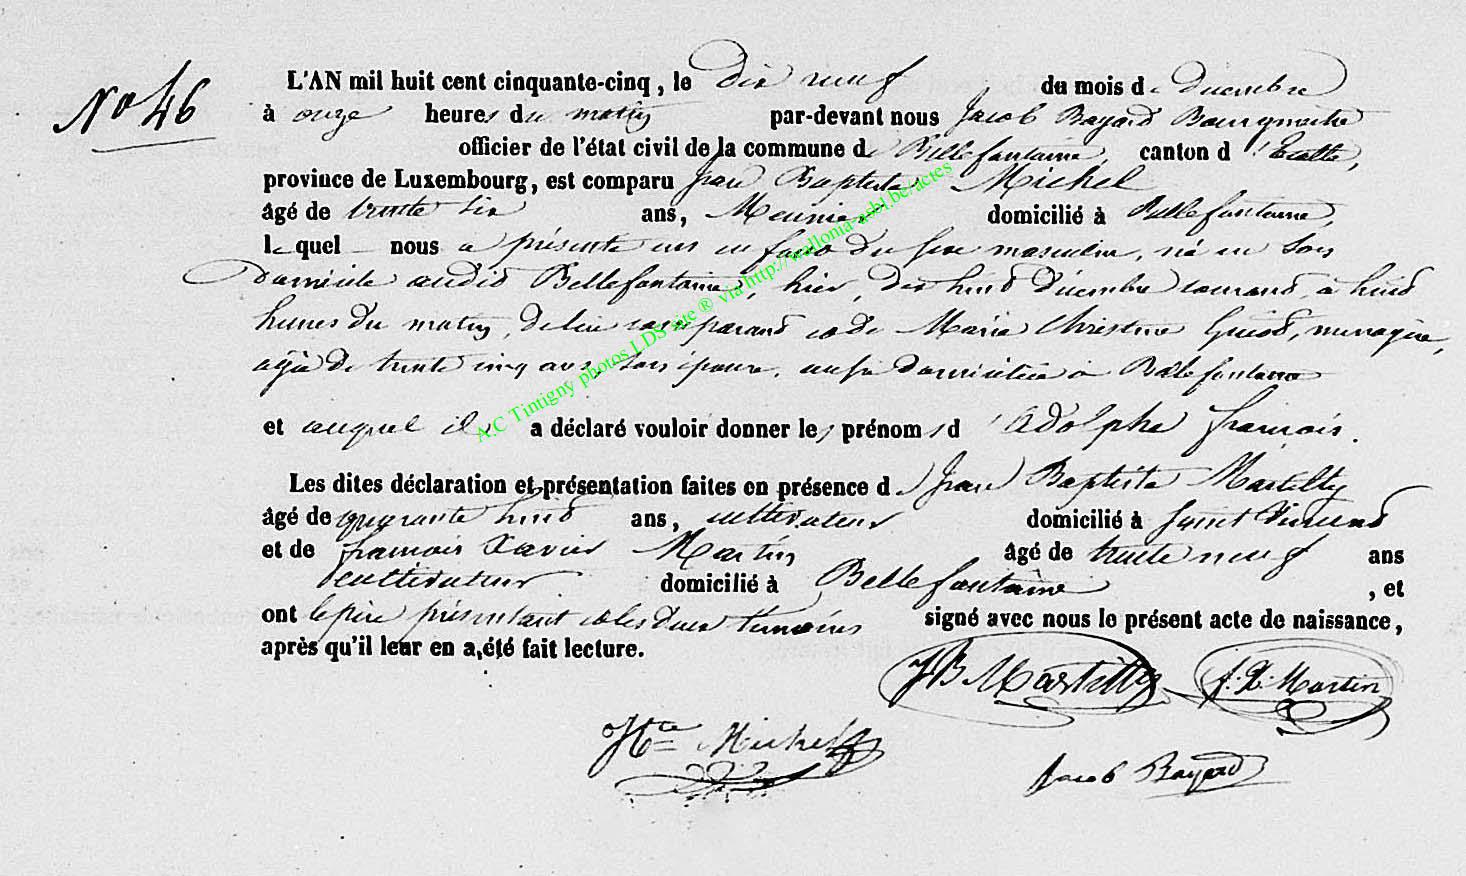 No 46
L'AN mil huit cent cinquante-cinq, le dix neuf du mois de décembre
à onze heures du matin par-devant nous Jacob Bayard Bourgmestre
officier de l'état civil de la commune de Bellefontaine, canton d'Etalle,
province de Luxembourg, est comparu Jean Baptiste Michel
âgé de trente six ans, Meunier domicilié à Bellefontaine,
lequel nous a présenté un enfant du sexe masculin, né en son
domicile audit Bellefontaine, hier, dix huit décembre courant, à huit
heures du matin, de lui comparant et de Marie Christine Guiot, ménagère,
agée de trente cinq ans, son épouse, aussi domiciliée à Bellefontaine
et auquel il a déclaré vouloir donner les prénoms d'Adolphe françois.
Les dites déclaration et présentation faites en présence de Jean Baptiste Martilly
âgé de quarante huit ans, cultivateur domicilié à Saint Vincent
et de françois Xavier Martin âgé de trente neuf ans
cultivateur domicilié à Bellefontaine, et
ont le père présentant et les deux témoins signé avec nous le présent acte de naissance,
après qu'il leur en a été fait lecture.
JB Martilly f. X. Martin
Michel
Jacob Bayard
A.C Tintigny photos LDS site ® via http://wallonia-asbl.be/actes